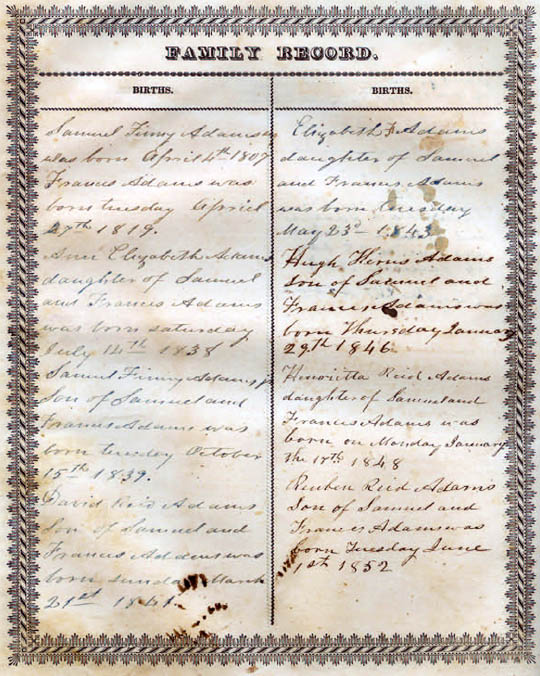 FAMILY RECORD.
BIRTHS.
Samuel Finny Adams
was born April 4th 1807
Frances Adams was
born tuesday April
27th 1819.
Ann Elizabeth Adams
daughter of Samuel
and Frances Adams
was born saturday
July 14th 1838
Samuel Finny Adams jr
Son of Samuel and
Frances Adams was
born tuesday October
15th 1839.
David Reid Adams
Son of Samuel and
Frances Addams was
born sunday March
21st 1841
BIRTHS.
Elizabeth F Adams
daughter of Samuel
and Frances Adams
was born tuesday
May 23d 1843
Hugh Adams
Son of Samuel and
Frances Adams was
born Thursday January
29th 1846.
Henrietta Reid Adams
daughter of Samuel and
Frances Adams was
born on Monday January
the 17th 1848
Reuben Ried Adams
Son of Samuel and
Frances Adams was
born Tuesday June
1st 1852